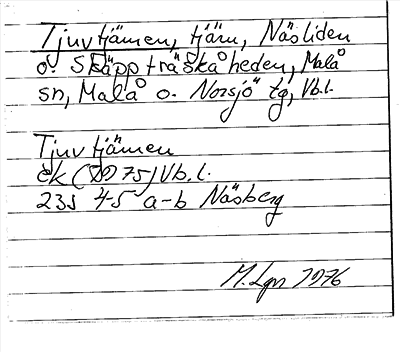 Tjuvtjärnen, tjärn, Näsliden
o. Skäppträskåheden, Malå
sn, Malå o. Norsjö tg, Vb.l.
Tjuvtjärnen
ek (1975) Vb.l.
23J 4-5 a-b Näsberg
M. Lgn 1976